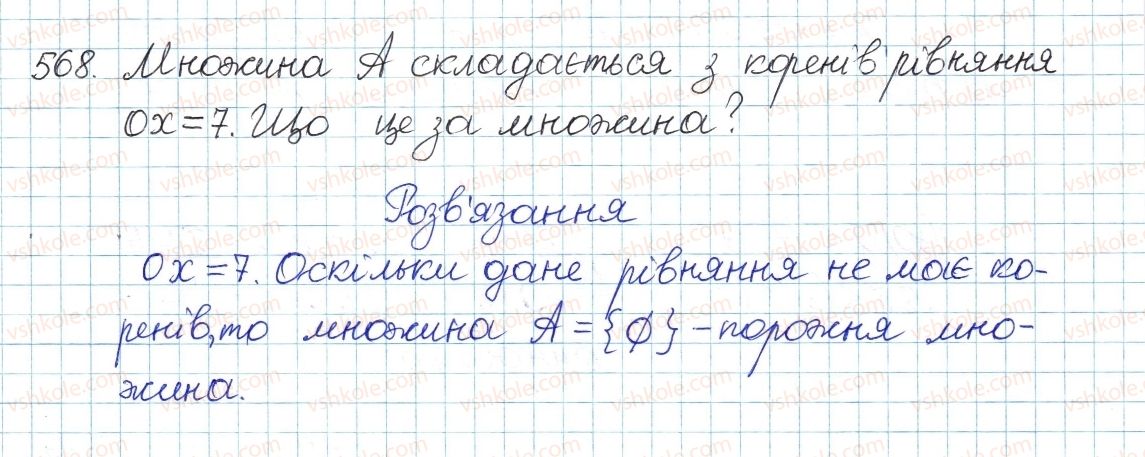 568. Множина A складається з коренів рівняння
0x=7. Що це за множина?
Розв'язання
0x=7. Оскільки дане рівняння не має ко-
ренів, то множина A={∅} - порожня мно-
жина.